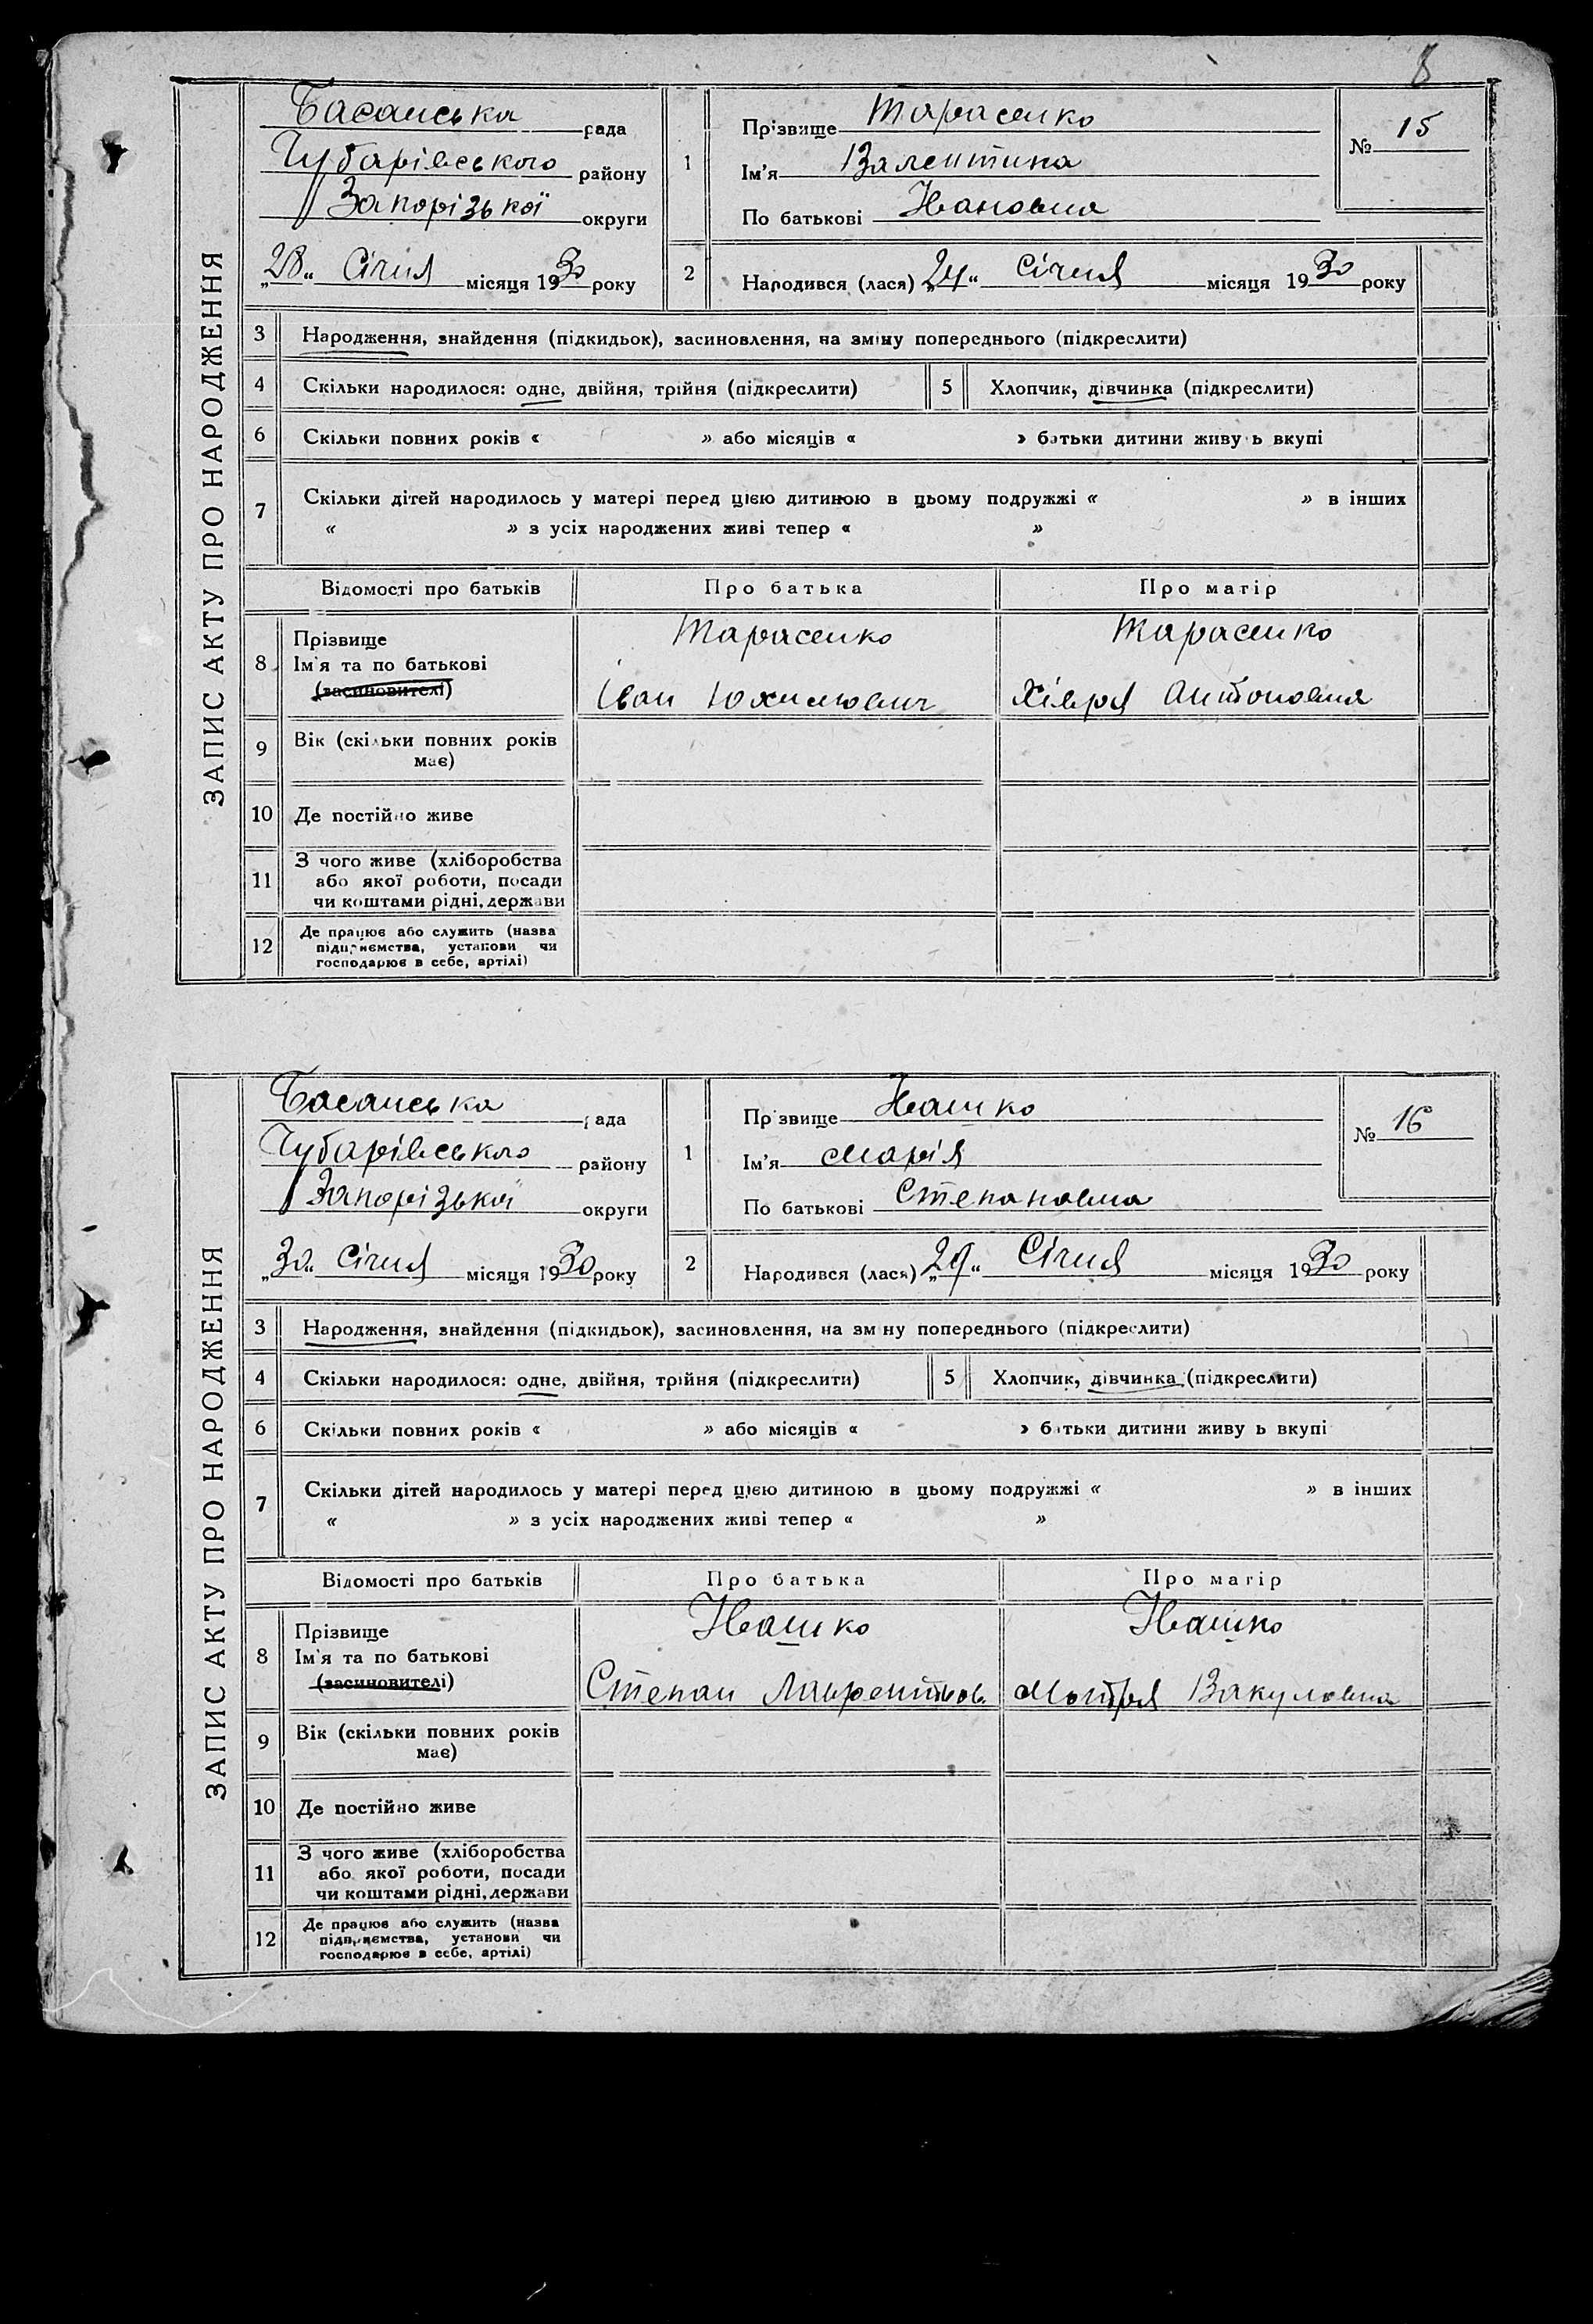 8
ЗАПИС АКТУ ПРО НАРОДЖЕННЯ
Басанська рада
Чубарівського району
Запорізької округи
„28“ Січня місяця 1930 року
1
Прізвище Тарасенко
Ім'я Валентина
По батькові Ивановна
№ 15
2
Народився (лася) „24“ Січня місяця 1930 року
3 Народження, знайдення (підкидьок), засиновлення, на зміну попереднього (підкреслити)
4 Скільки народилося: одне, двійня, трійня (підкреслити) 5 Хлопчик, дівчинка (підкреслити)
6 Скільки повних років « » або місяців « » батьки дитини живуть вкупі
7 Скільки дітей народилось у матері перед цією дитиною в цьому подружжі « » в інших
« » з усіх народжених живі тепер « »
Відомості про батьків Про батька Про матір
8 Прізвище Тарасенко Тарасенко
Ім'я та по батькові
(засиновителі) Іван Юхимович Хівря Антоновна
9 Вік (скільки повних років
має)
10 Де постійно живе
11 З чого живе (хліборобства
або якої роботи, посади
чи коштами рідні, держави
12 Де працює або служить (назва
підприємства, установи чи
господарює в себе, артілі)
ЗАПИС АКТУ ПРО НАРОДЖЕННЯ
Басанська рада
Чубарівського району
Запорізької округи
„30“ Січня місяця 1930 року
1
Прізвище Ивашко
Ім'я Марія
По батькові Степановна
№ 16
2
Народився (лася) „29“ Січня місяця 1930 року
3 Народження, знайдення (підкидьок), засиновлення, на зміну попереднього (підкреслити)
4 Скільки народилося: одне, двійня, трійня (підкреслити) 5 Хлопчик, дівчинка (підкреслити)
6 Скільки повних років « » або місяців « » батьки дитини живуть вкупі
7 Скільки дітей народилось у матері перед цією дитиною в цьому подружжі « » в інших
« » з усіх народжених живі тепер « »
Відомості про батьків Про батька Про матір
8 Прізвище Ивашко Ивашко
Ім'я та по батькові
(засиновителі) Степан Лаврентьов. Мотря Вакуловна
9 Вік (скільки повних років
має)
10 Де постійно живе
11 З чого живе (хліборобства
або якої роботи, посади
чи коштами рідні, держави
12 Де працює або служить (назва
підприємства, установи чи
господарює в себе, артілі)